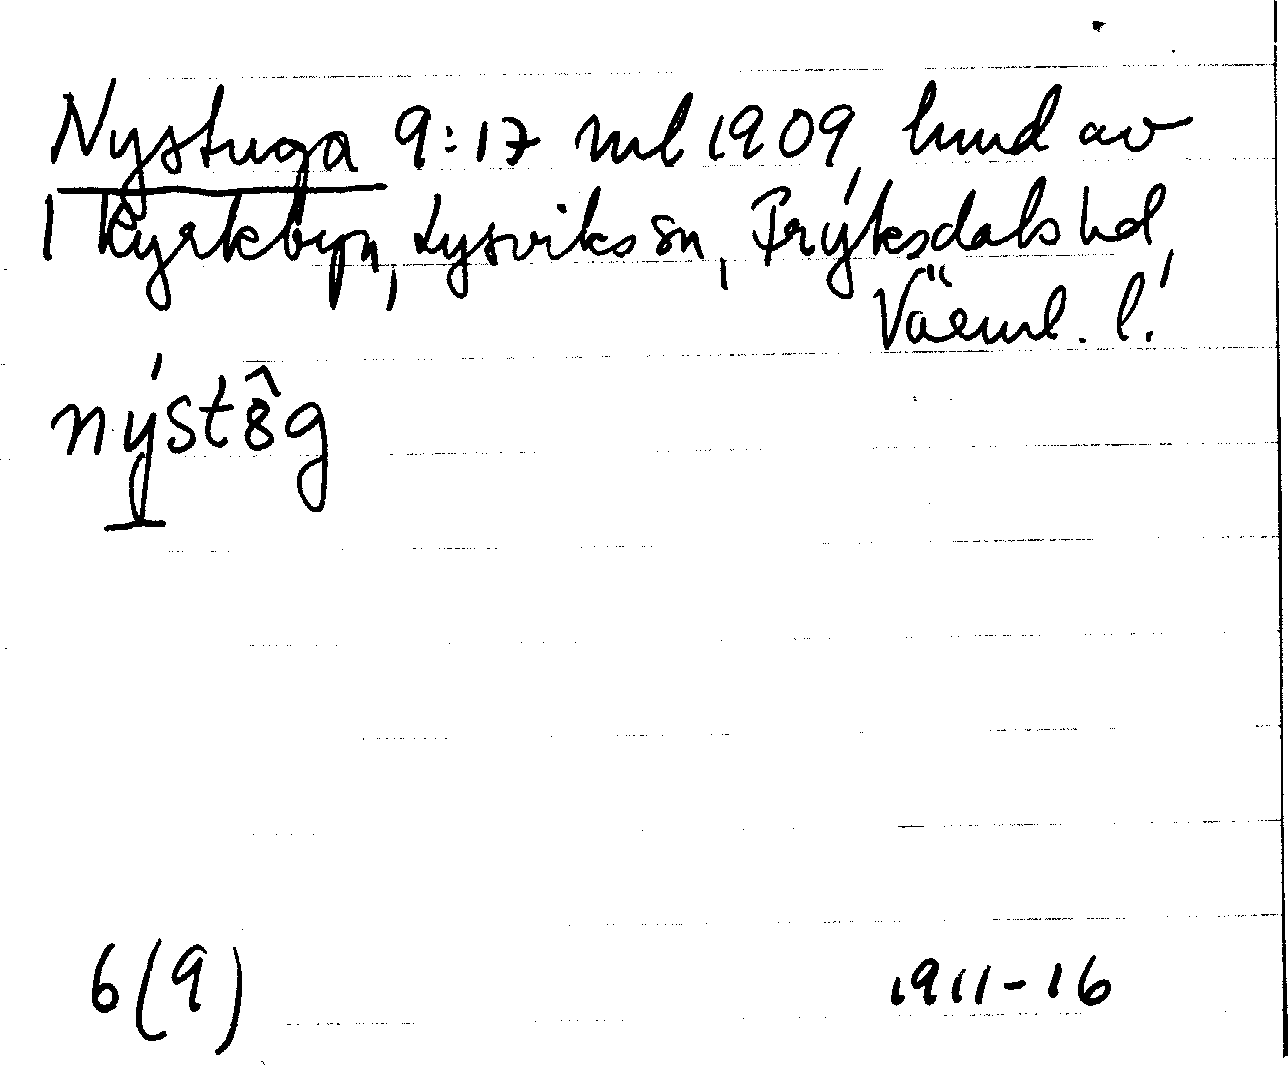 Nystuga 9:17 ml 1909, hmd av
1 Kyrkbyn, Lysviks sn, Fryksdals hd,
Värml. l.
nýstôg
6(9) 1911-16